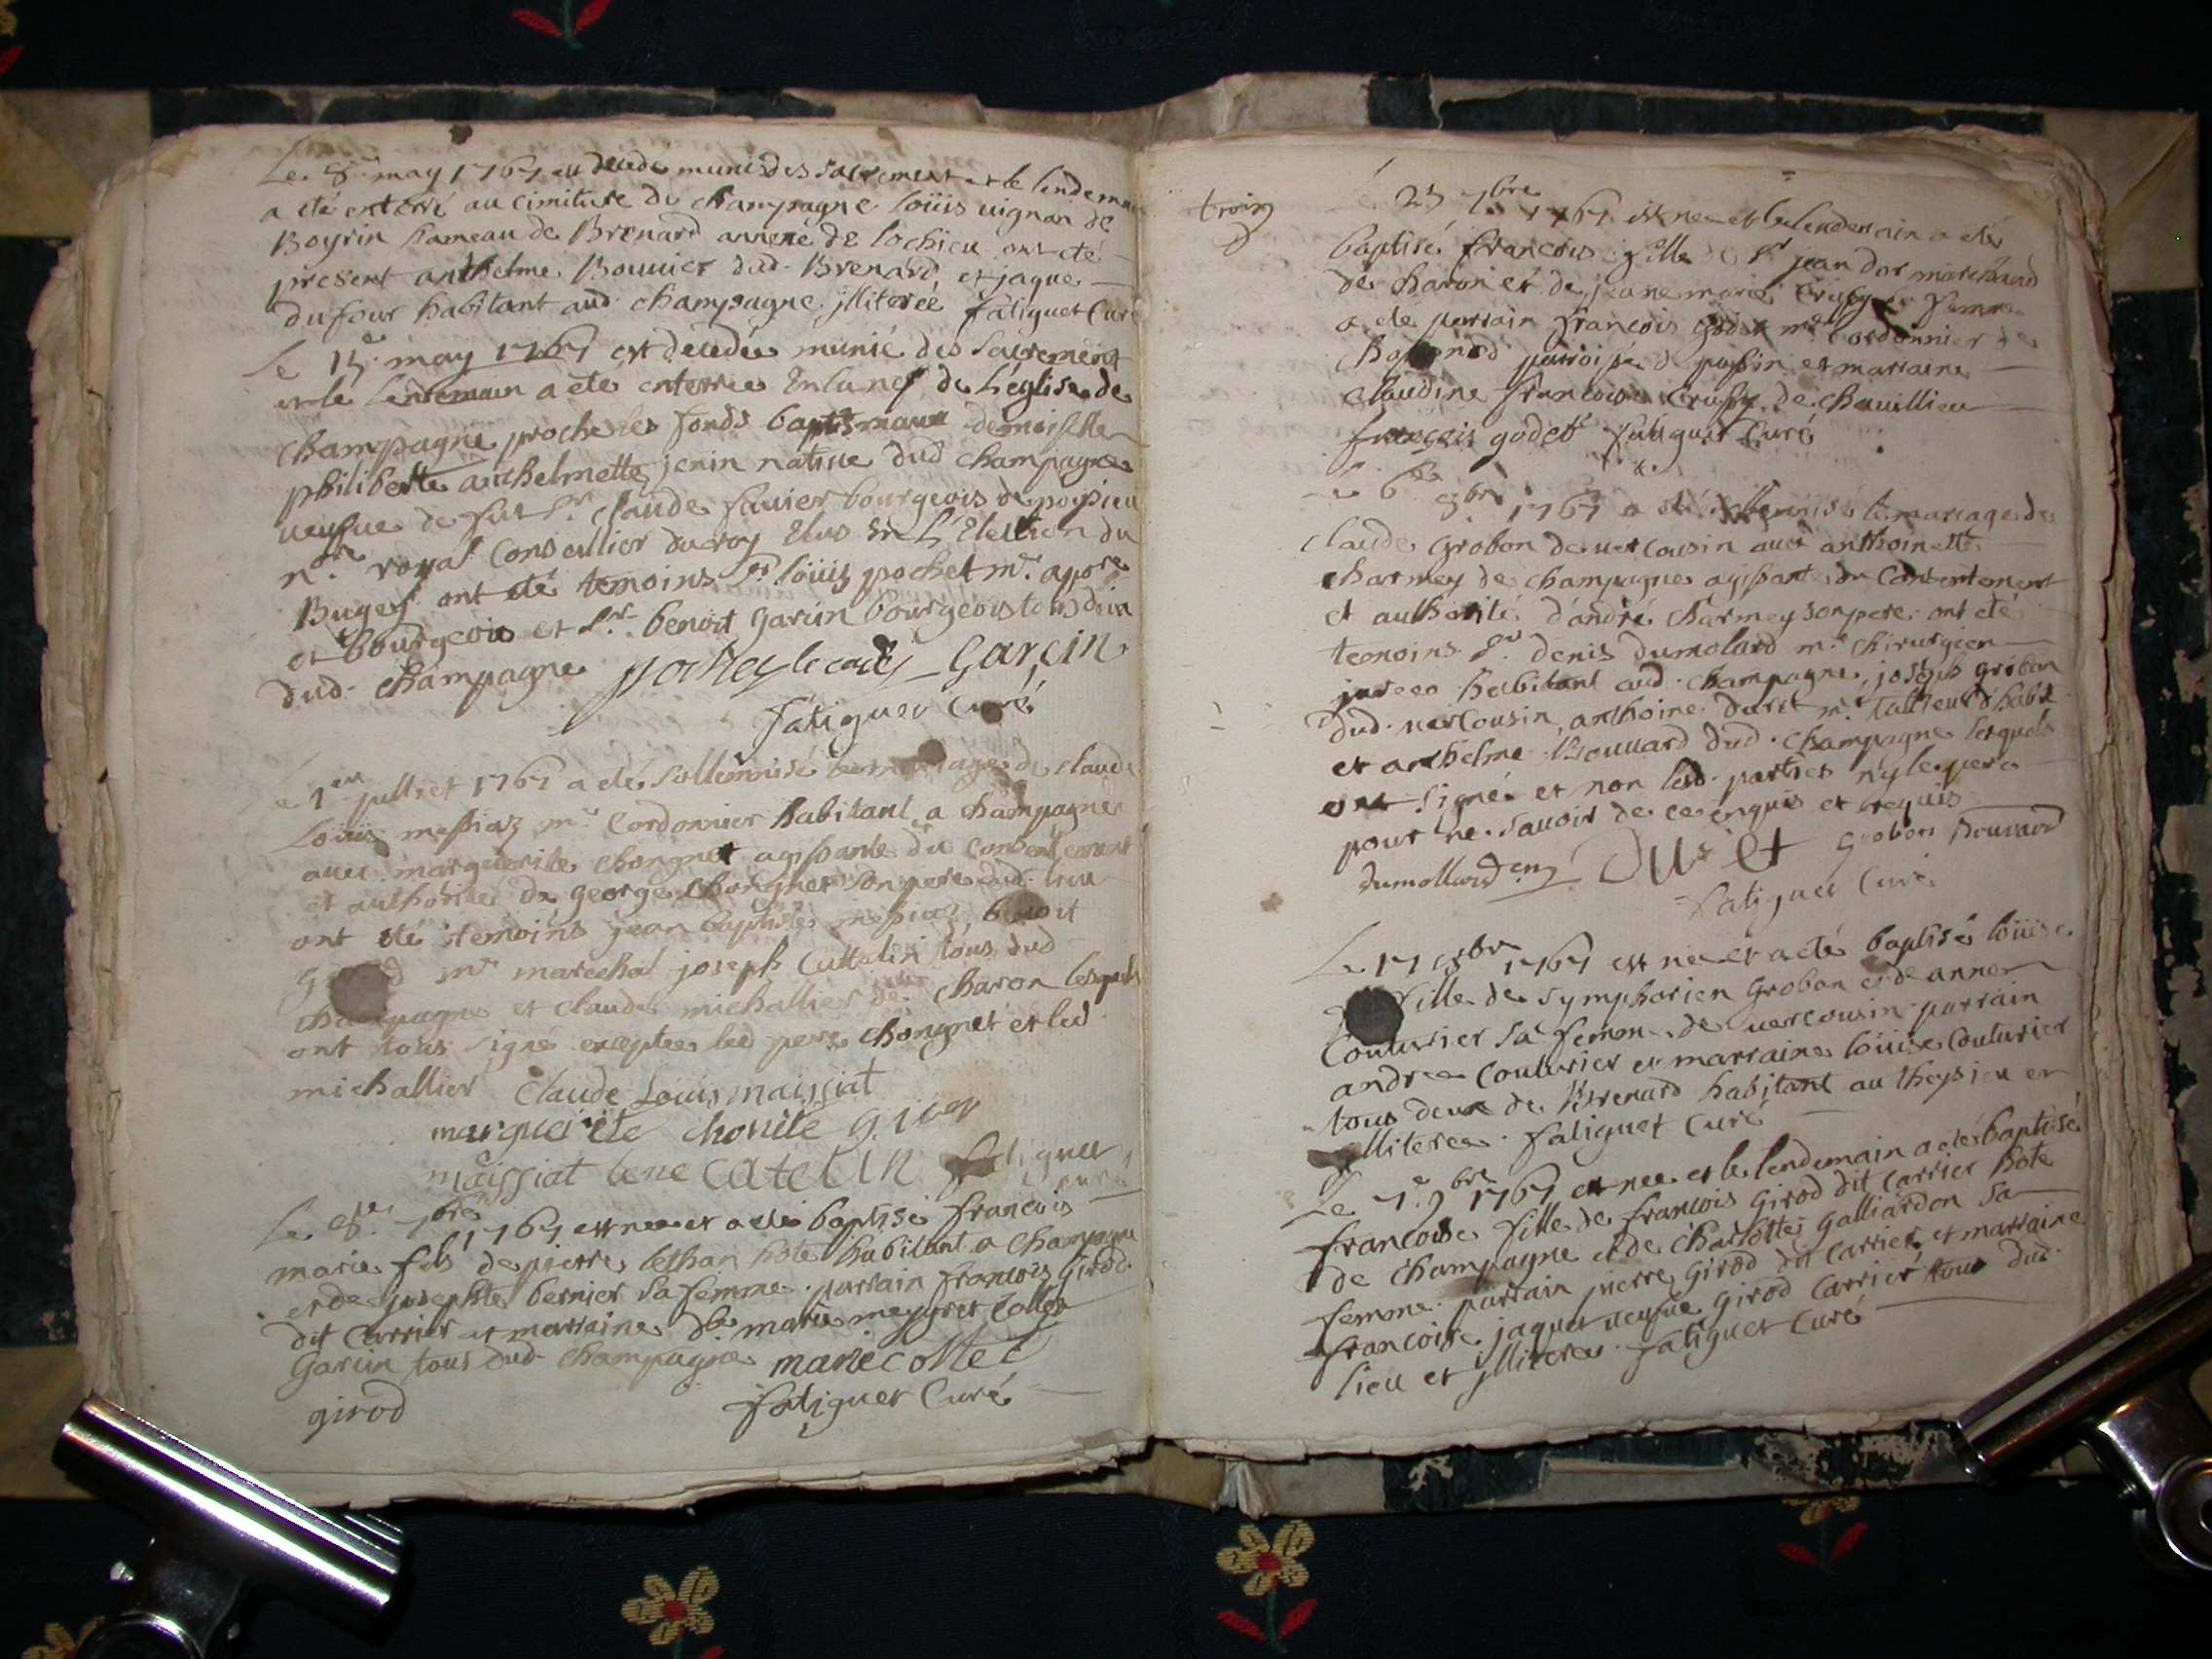 Le 8e may 1767 est decedé munis des sacrement et le lendemain
a eté enterré au cimitiere de champagne loüis uignan de
Boyrin hameau de Brenard annexe de lochieu ont eté
present anthelme Bouuier dud. Brenard et jaque
dufour habitant aud. champagne jlliterée fatiguet Curé
Le 15e may 1767 est decedée munie des Sacrement
et le lendemain a eté enterrée En la nef de L'église de
champagne proche les fonds baptismaux demoiselle
philiberte anthelmette jenin natiue dud champagne
ueufue de fut Sr. claude fauier bourgeois de poysieu
nre. royal Conseillier du roy Elus En L'Election du
Bugey ont eté temoins Sr loüis pochet mr. apore
et bourgeois et Sr. benoit garcin bourgeois tous deux
dud. champagne pochet le cadet Garcin
fatiguet Curé
Le 1er juillet 1767 a eté Sollemnisé le mariage de claude
Loüis messiaz mr. Cordonnier habitant a champagne
auec marguerite chongnet agissante du consentement
et authorité de george chongnet son pere dud. lieu
ont eté temoins jean baptiste messiaz, benoit
mr marechal joseph Cattelin tous dud
champagne et claude michallier de charon lesquels
ont tous signé exceptes led pere chongnet et led.
michallier Claude Louis maissiat
margueritte chonite
maissiat lene catelin fatiguet
curé
Le 8e. 7bre 1767 est nee et a eté baptisé francois
marie fils de pierre lethan hote habitant a champagne
et de josephte bernier sa femme. parrain francois girod
dit Carrier et marraine de. marie meygret Collet
Garcin tous dud champagne marie collet
girod fatiguet Curé
Le 25 7bre 1767 est nee et le lendemain a eté
baptisé francoise fille de Sr jean dor marchand
de charon et de jeane marie Crussy sa femme
a eté parrain francois godet mr. Cordonnier de
parroisse de passin et marraine
claudine francoise Crussy de chauillieu
françois godet fatiguet Curé
Le 6e 8bre 1767 a eté sollemnisé le mariage de
claude grobon de uercousin auec anthoinette
charmey de champagne agissante du Consentement
et authorité d'andré charmey son pere. ont eté
temoins Sr. denis dumolard mr. chirurgien
jurée habitant aud. champagne, joseph grobon
dud. uercousin, anthoine duret mr. tallieur d'habit
et anthelme Bouuard dud. champagne lesquels
ont signé et non lesd. parties ny le pere
pour ne sauoir de ce enquis et requis
dumollard Duret grobon Bouuard
fatiguet Curé
Le 17 8bre 1767 est nee et a eté baptisé loüise
fille de symphorien grobon et de anne
Couturier sa femme de uercousin parrain
andree Couturier et marraine loüise Couturier
tous deux de Brenard habitant au theysieu et
jlliteree. fatiguet Curé
Le 7e. 9bre 1767 est nee et le lendemain a eté baptisé
francoise fille de francois girod dit carrier hote
de champagne et de charlotte galliardon sa
femme. parrain pierre girod dit Carrier et marraine
francoise jaquet ueufue girod Carrier tous dud.
lieu et jlliteree. fatiguet Curé